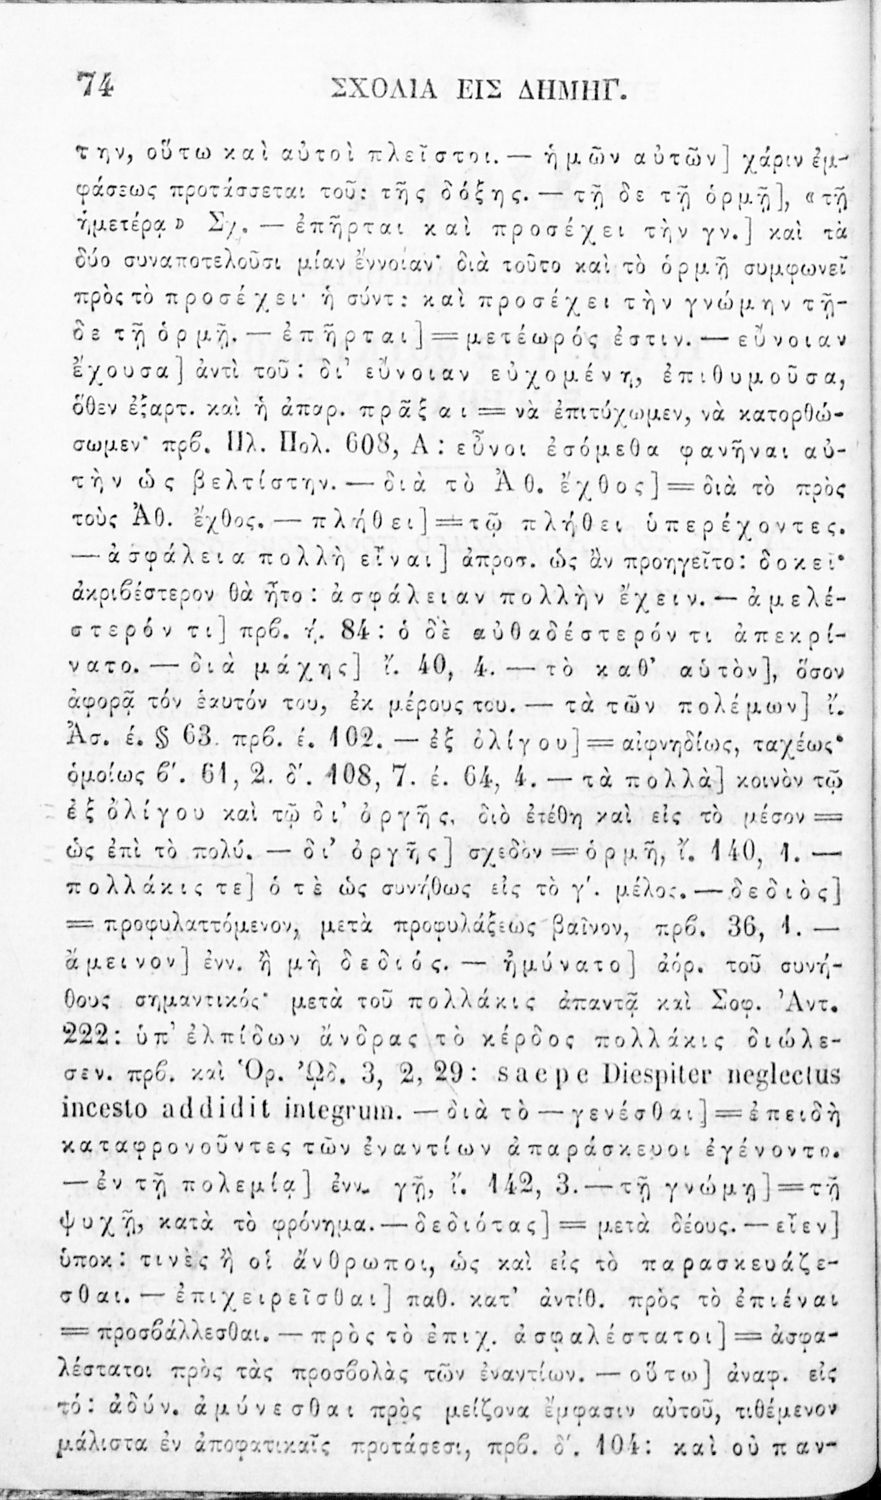 74 ΣΧΟΛΙΑ ΕΙΣ ΔΗΜΗΓ.
την, οὕτω καὶ αὐτοὶ πλεῖστοι. — ἡμῶν αὐτῶν] χάριν ἐμ-
φάσεως προτάσσεται τοῦ: τῆς δόξης. — τῇ δε τῇ ὁρμῇ], «τῇ
ἡμετέρᾳ» Σχ. — ἐπῆρται καὶ προσέχει τὴν γν.] καὶ τὰ
δύο συναποτελοῦσι μίαν ἔννοίαν· διὰ τοῦτο καὶ τὸ ὁρμῇ συμφωνεῖ
πρὸς τὸ προσέχει· ἡ σύντ: καὶ προσέχει τὴν γνώμην τῇ-
δε τῇ ὁρμῇ. — ἐπῆρται] = μετέωρός ἐστιν. — εὔνοιαν
ἔχουσα] ἀντὶ τοῦ: δι' εὔνοιαν εὐχομένη, ἐπιθυμοῦσα,
ὅθεν ἐξαρτ. καὶ ἡ ἀπαρ. πρᾶξαι = νὰ ἐπιτύχωμεν, νὰ κατορθώ-
σωμεν· πρβ. Πλ. Πολ. 608, Α: εὖνοι ἐσόμεθα φανῆναι αὐ-
τὴν ὡς βελτίστην. — διὰ τὸ Ἀθ. ἔχθος] = διὰ τὸ πρὸς
τοὺς Ἀθ. ἔχθος. — πλήθει] = τῷ πλήθει ὑπερέχοντες.
— ἀσφάλεια πολλὴ εἶναι] ἀπροσ. ὡς ἂν προηγεῖτο: δοκεῖ·
ἀκριβέστερον θὰ ἦτο: ἀσφάλειαν πολλὴν ἔχειν. — ἀμελέ-
στερόν τι] πρβ. ή. 84: ὁ δὲ αὐθαδέστερόν τι ἀπεκρί-
νατο. — διὰ μάχης] ἴ. 40, 4. — τὸ καθ' αὑτὸν], ὅσον
ἀφορᾷ τόν ἑαυτόν του, ἐκ μέρους του. — τὰ τῶν πολέμων] ἴ.
Ἀσ. έ. § 63. πρβ. έ. 102. — ἐξ ὀλίγου] = αἰφνηδίως, ταχέως·
ὁμοίως β'. 61, 2. δ'. 108, 7. έ. 64, 4. — τὰ πολλὰ] κοινὸν τῷ
ἐξ ὀλίγου καὶ τῷ δι' ὀργῆς, διὸ ἐτέθη καὶ εἰς τὸ μέσον =
ὡς ἐπὶ τὸ πολύ. — δι' ὀργῆς] σχεδὸν = ὁρμῇ, ἴ. 140, 1. —
πολλάκις τε] ὁ τὲ ὡς συνήθως εἰς τὸ γ'. μέλος. — δεδιὸς]
= προφυλαττόμενον, μετὰ προφυλάξεως βαῖνον, πρβ. 36, 1. —
ἄμεινον] ἐνν. ἢ μὴ δεδιός. — ἠμύνατο] ἀόρ. τοῦ συνή-
θους σημαντικός· μετὰ τοῦ πολλάκις ἀπαντᾷ καὶ Σοφ. Ἀντ.
222: ὑπ' ἐλπίδων ἄνδρας τὸ κέρδος πολλάκις διώλε-
σεν. πρβ. καὶ Ὁρ. Ὠδ. 3, 2, 29: saepe Diespiter neglectus
incesto addidit integrum. — διὰ τὸ — γενέσθαι] = ἐπειδὴ
καταφρονοῦντες τῶν ἐναντίων ἀπαράσκευοι ἐγένοντο.
— ἐν τῇ πολεμίᾳ] ἐνν. γῇ, ἴ. 142, 3. — τῇ γνώμῃ] = τῇ
ψυχῇ, κατὰ τὸ φρόνημα. — δεδιότας] = μετὰ δέους. — εἶεν]
ὑποκ: τινὲς ἢ οἱ ἄνθρωποι, ὡς καὶ εἰς τὸ παρασκευάζε-
σθαι. — ἐπιχειρεῖσθαι] παθ. κατ' ἀντίθ. πρὸς τὸ ἐπιέναι
= προσβάλλεσθαι. — πρὸς τὸ ἐπιχ. ἀσφαλέστατοι] = ἀσφα-
λέστατοι πρὸς τὰς προσβολὰς τῶν ἐναντίων. — οὕτω] ἀναφ. εἰς
τό: ἀδύν. ἀμύνεσθαι πρὸς μείζονα ἔμφασιν αὐτοῦ, τιθέμενον
μάλιστα ἐν ἀποφατικαῖς προτάσεσι, πρβ. δ'. 104: καὶ οὐ παν-